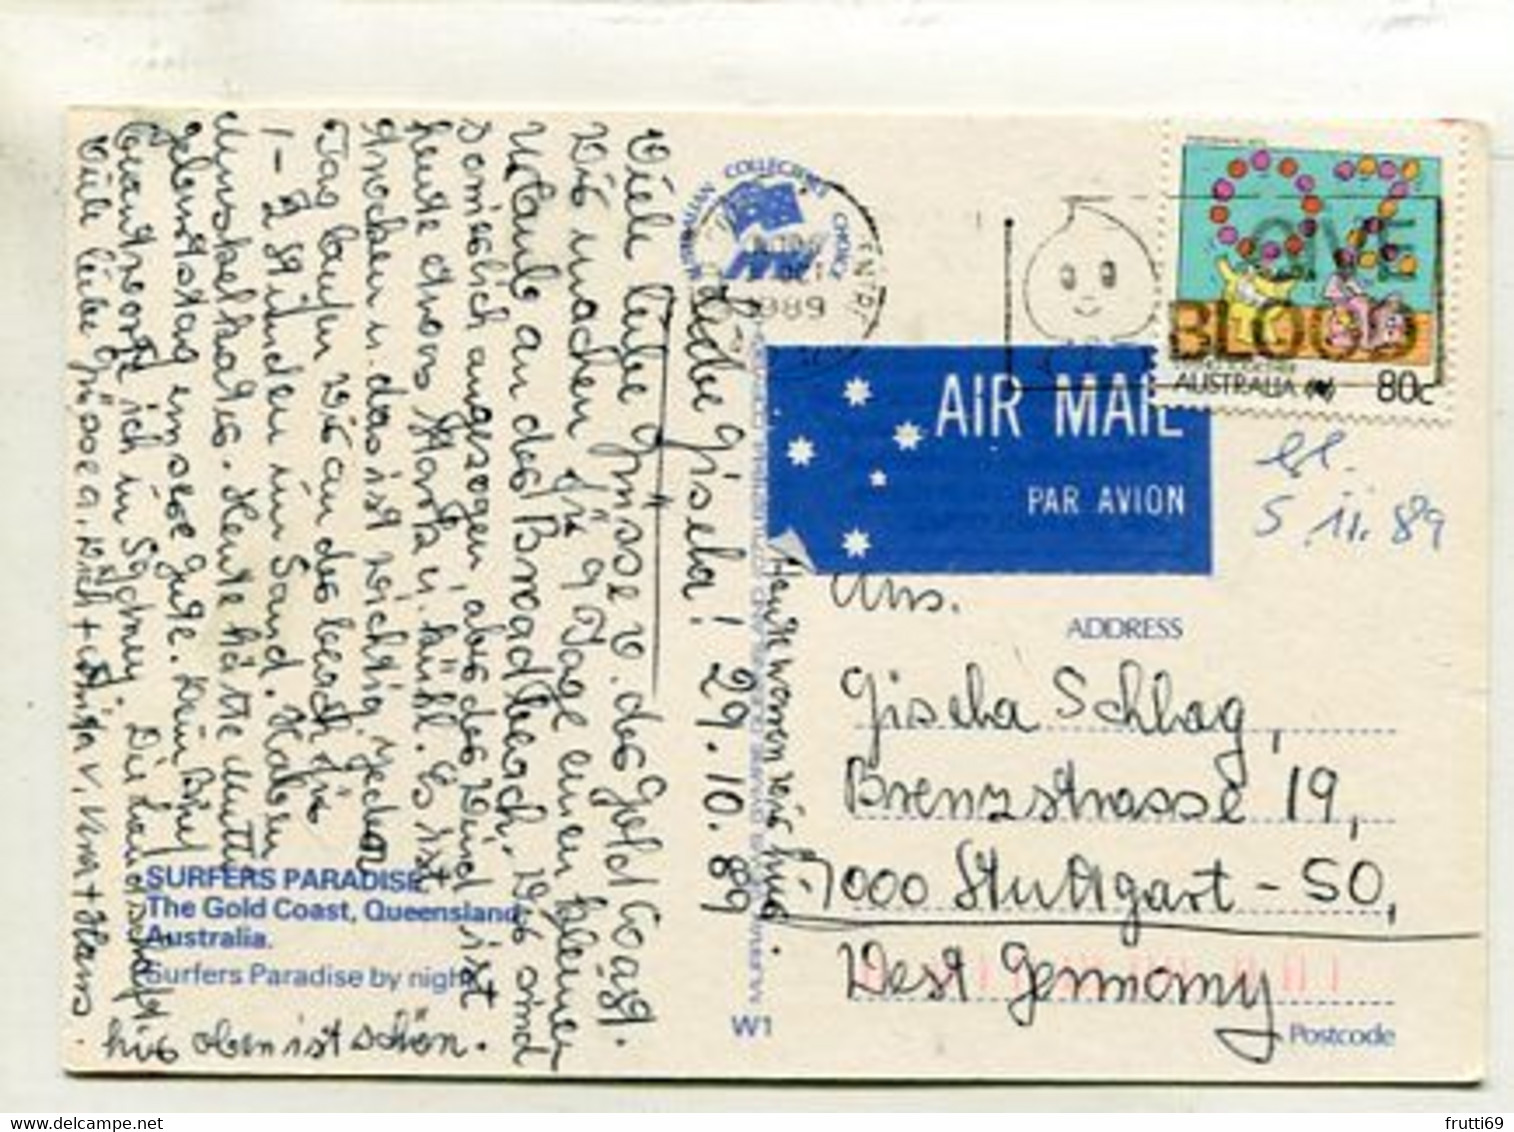 Liebe Gisela! 29.10.89
Viele liebe Grüsse v. der Gold Coast.
Wir machen für 9 Tage einen kleinen
Urlaub an der Broadbeach. Wir sind
sommerlich angezogen, aber der Wind ist
heute etwas stark u. kühl. Es ist
trocken u. das ist wichtig. Jeden
Tag laufen wir an der beach für
1-2 Stunden im Sand. Haben
Muskelkater. Heute hätte Mutti
Geburtstag
beantworte ich in Sydney. Die Landschaft
hier oben ist schön.
Viele liebe Grüsse a. Dich + v. Vera + Hans.
Heute waren wir hier.
AUSTRALIAN COLLECTORS CHOICE
1989
GIVE
BLOOD
LIVING TOGETHER
AUSTRALIA 80c
AIR MAIL
PAR AVION
5.11.89
An
ADDRESS
Gisela Schlag,
Brenzstrasse 19,
7000 Stuttgart-50,
West Germany
Postcode
SURFERS PARADISE
The Gold Coast, Queensland
Australia.
Surfers Paradise by night
W1
frutti69